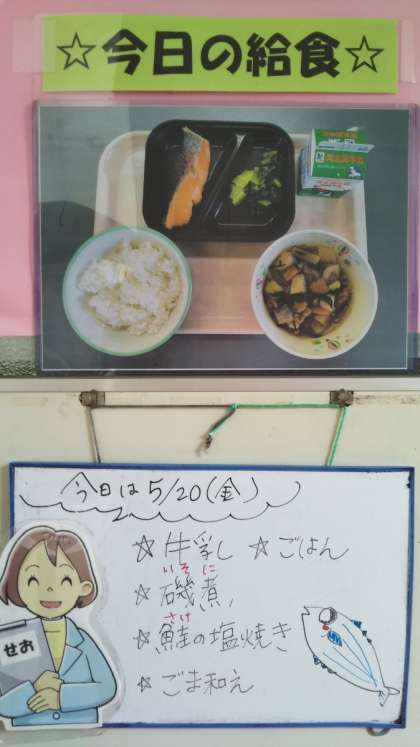 ☆今日の給食☆
今日は5/20(金)
☆牛乳 ☆ごはん
いそに
☆磯煮
さけ
☆鮭の塩焼き
☆ごま和え
せお